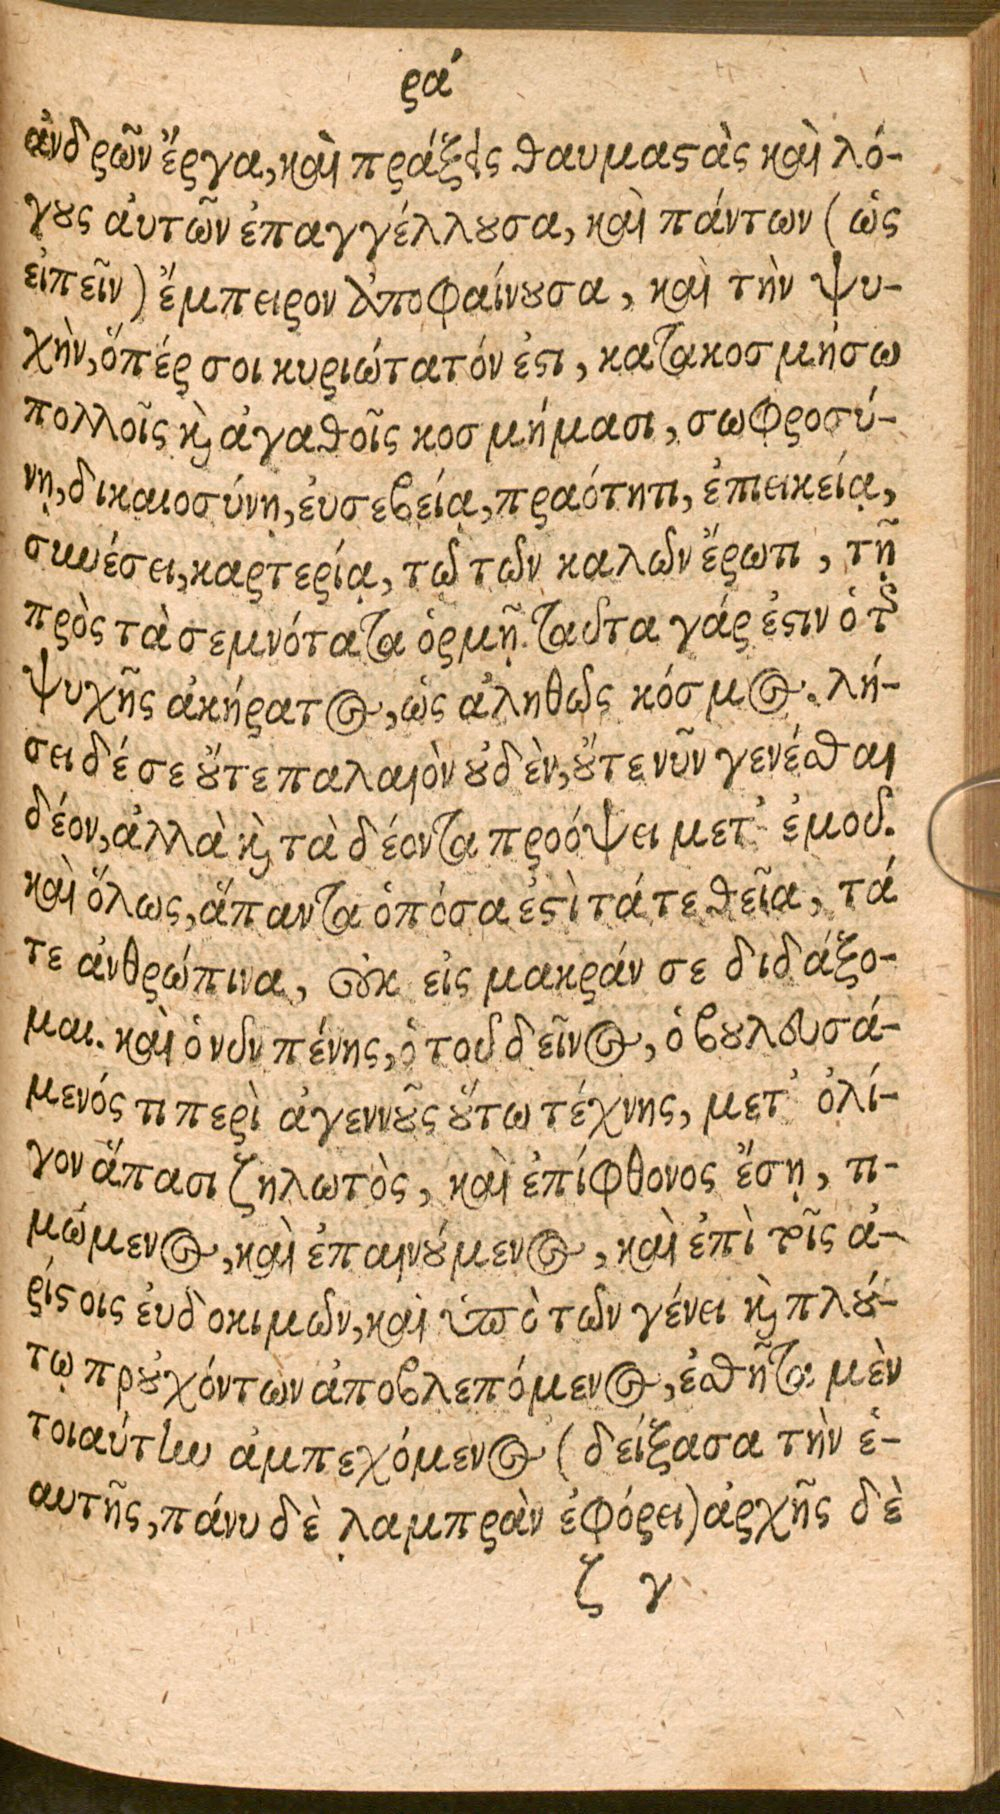 ρα΄
ἀνδρῶν ἔργα, καὶ πράξεις θαυμαςὰς καὶ λό-
γȣς ἀυτῶν ἐπαγγέλλȣσα, καὶ πάντων (ὡς
εἰπεῖν) ἔμπειρον ἀποφαίνȣσα, καὶ τὴν ψυ-
χὴν, ὅπέρ σοι κυριώτατόν ἐςι, κατακοσμήσω
πολλοῖς κ̀ ἀγαθοῖς κοσμήμασι, σωφροσύ-
νῃ, δικαιοσύνῃ, ἐυσεβείᾳ, πραότητι, ἐπιεικείᾳ,
συνέσει, καρτερίᾳ, τῷ τῶν καλῶν ἔρωτι, τῇ
πρὸς τὰ σεμνότατα ὁρμῇ. ταῦτα γάρ ἐςιν ὁ τῆς
ψυχῆς ἀκήρατος, ὡς ἀληθῶς κόσμος. λή-
σει δέ σε ȣ̓́τε παλαιὸν ȣ̓δὲν, ȣ̓́τε νῦν γενέσθαι
δέον, ἀλλὰ κ̀ τὰ δέοντα προόψει μετ᾽ ἐμοῦ.
καὶ ὅλως, ἅπαντα ὁπόσα ἐςὶ τά τε θεῖα, τά
τε ἀνθρώπινα, οὐκ εἰς μακράν σε διδάξο-
μαι. καὶ ὁ νῦν πένης, ὁ τοῦ δεῖνος, ὁ βȣλευσά-
μενός τι περὶ ἀγεννοῦς ȣ̔́τω τέχνης, μετ᾽ ὀλί-
γον ἅπασι ζηλωτὸς, καὶ ἐπίφθονος ἔσῃ, τι-
μώμενος, καὶ ἐπαινȣ́μενος, καὶ ἐπὶ τοῖς ἀ-
ρίςοις ἐυδοκιμῶν, καὶ ὑπὸ τῶν γένει κ̀ πλȣ́-
τῳ πρȣχόντων ἀποβλεπόμενος, ἐσθῆτα μὲν
τοιαύτην ἀμπεχόμενος (δείξασα τὴν ἑ-
αυτῆς, πάνυ δὲ λαμπρὰν ἐφόρει) ἀρχῆς δὲ
ζ γ